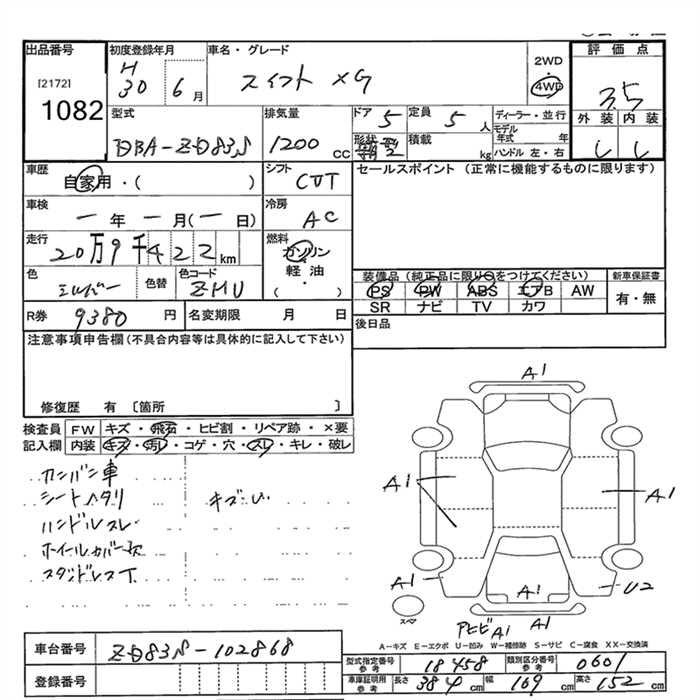 出品番号
[2172]
1082
初度登録年月
H
30 6月
車名・グレード
スイフト XG
2WD
4WD
評価点
3.5
外装 内装
型式
DBA-ZD83S
排気量
1200 CC
ドア
5
形状
定員
5人
積載
kg
ディーラー・並行
モデル年式 年
ハンドル 左・右
車歴
自家用・( )
シフト
CVT
セールスポイント (正常に機能するものに限ります)
車検
一年 一月(一日)
冷房
AC
走行
20万9千422km
燃料
ガソリン
軽油・
( )
色
シルバー
色替
色コード
ZMU
装備品 (純品に限り○をつけてください)
PS PW ABS エアB AW
SR ナビ TV カワ
新車保証書
有・無
R券
9380円
名変期限 月 日
後日品
注意事項申告欄(不具合内容等は具体的に記入して下さい)
修復歴 有 〔箇所 〕
検査員記入欄
FW キズ・飛石・ヒビ割・リペア跡・×要
内装 キズ・汚れ・コゲ・穴・スレ・キレ・破レ
カンバン車
シートヘタリ キズ
ハンドルスレ
ホイールカバー欠
スタッドレスT
A1
A1
A1
A1
A1
U2
A1
スペア
アヒビA1
A-キズ E-エクボ U-凹み W-補修跡 S-サビ C-腐食 XX-交換済
車台番号
ZD83S-102868
登録番号
型式指定番号 参考
18458
類別区分番号 参考
0601
車庫証明用 参考
長さ 384cm
幅 169cm
高さ 152cm